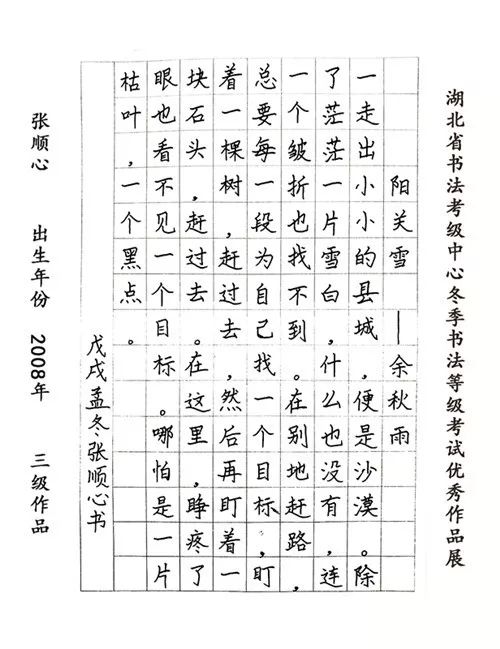 湖北省书法考级中心冬季书法等级考试优秀作品展
阳关雪—余秋雨
一走出小小的县城，便是沙漠。除
了茫茫一片雪白，什么也没有，连
一个皱折也找不到。在别地赶路，
总要每一段为自己找一个目标，盯
着一棵树，赶过去，然后再盯着一
块石头，赶过去。在这里，睁疼了
眼也看不见一个目标。哪怕是一片
枯叶，一个黑点。
戊戌孟冬张顺心书
张顺心 出生年份 2008年 三级作品